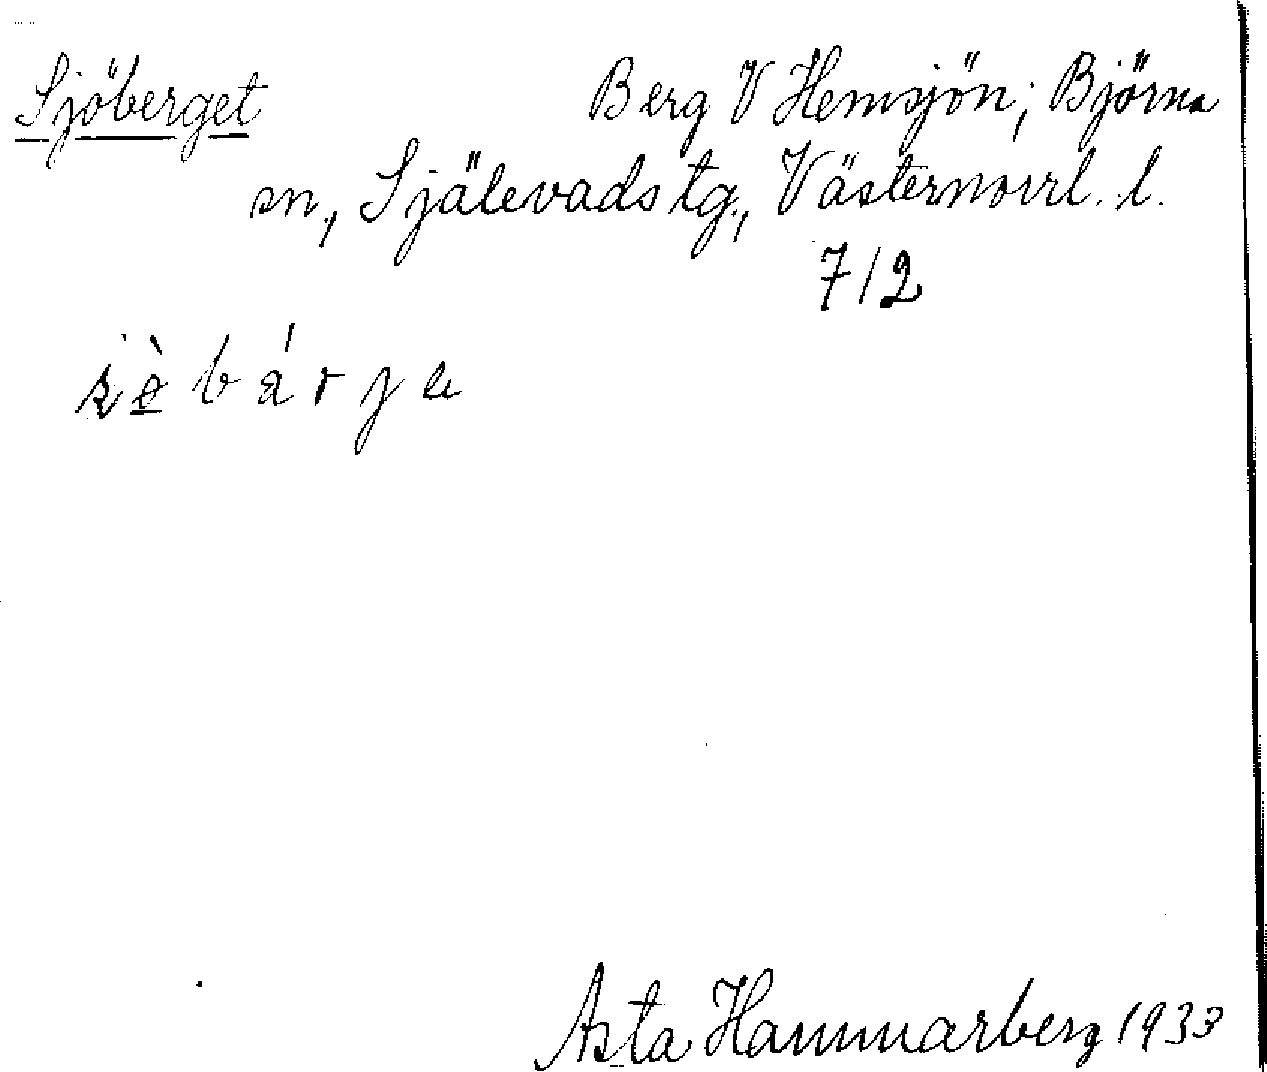 Sjöberget Berg V Hemsjön; Björna
sn., Själevads tg., Västernorrl. l.
712
Asta Hammarberg 1933